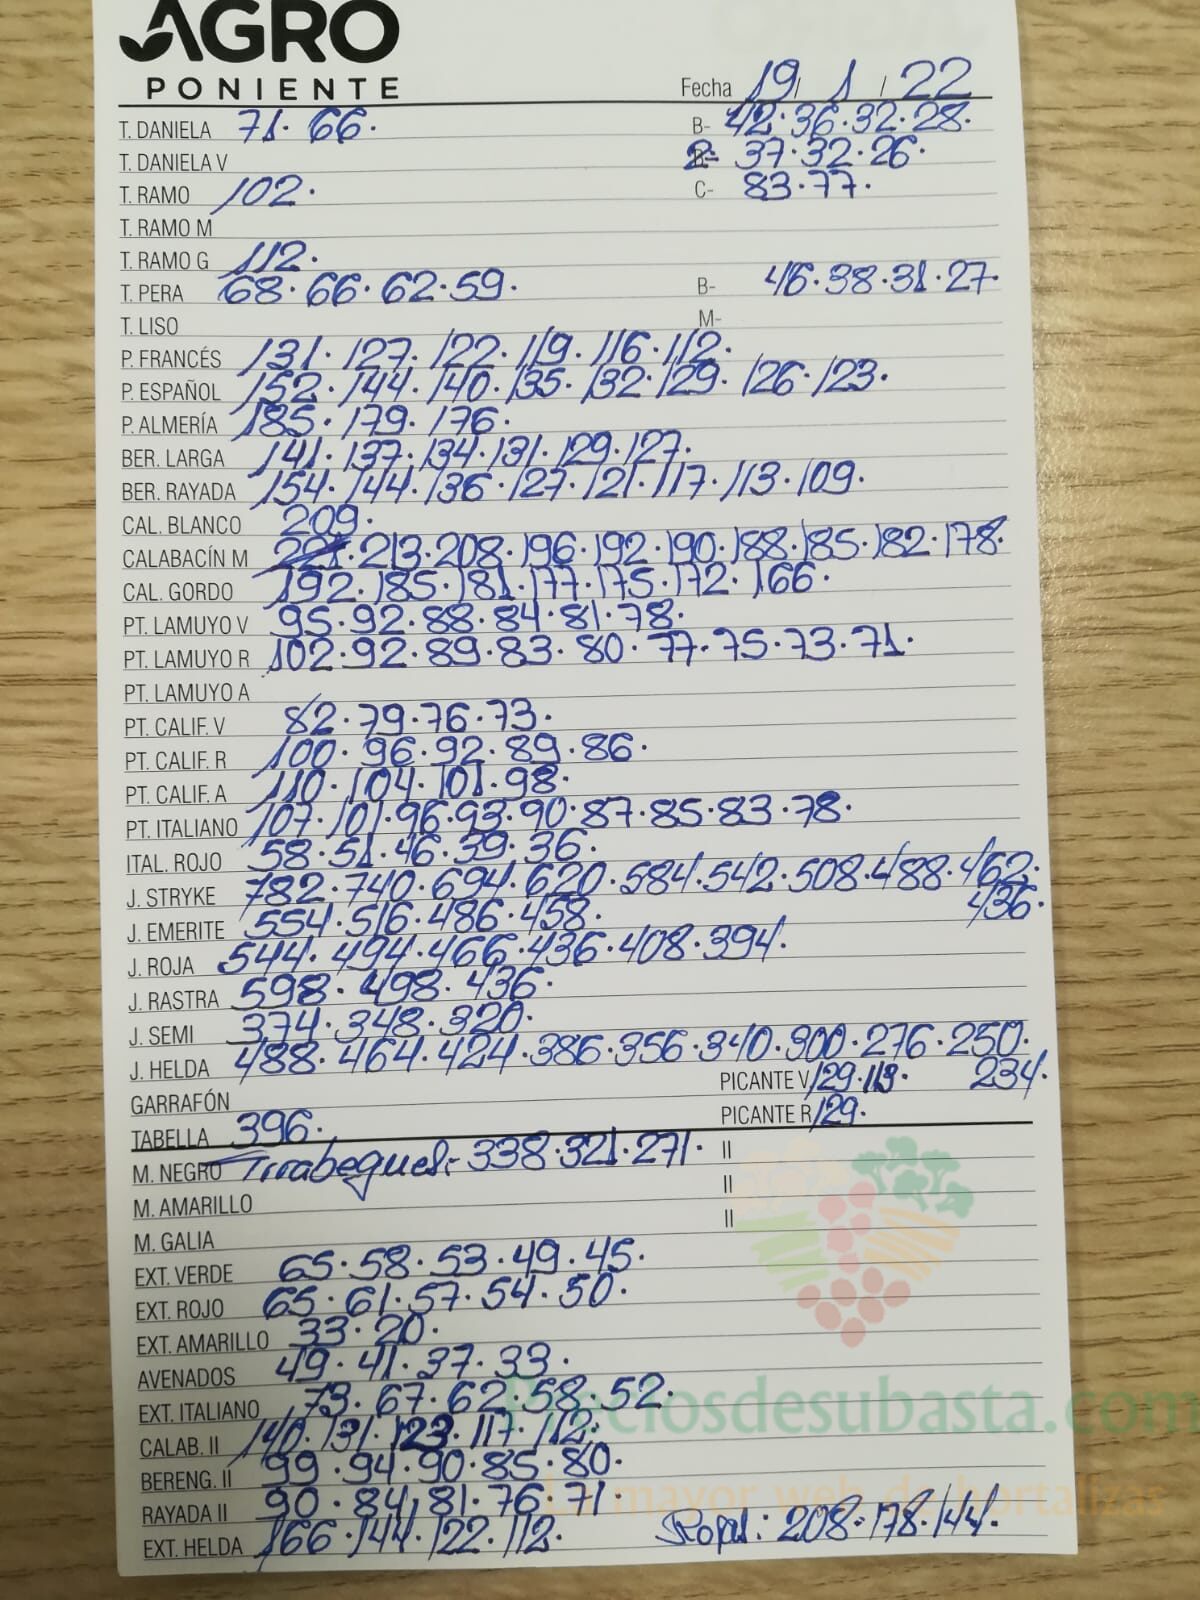 AGRO
PONIENTE
Fecha 19 / 1 / 22
T. DANIELA 71. 66. B- 42.36.32.28.
T. DANIELA V 2- 37.32.26.
T. RAMO 102. C- 83.77.
T. RAMO M
T. RAMO G 112.
T. PERA 68.66.62.59. B- 46.38.31.27.
T. LISO M-
P. FRANCÉS 131.127.122.119.116.112.
P. ESPAÑOL 152.144.140.135.132.129.126.123.
P. ALMERÍA 185.179.176.
BER. LARGA 141.137.134.131.129.127.
BER. RAYADA 154.144.136.127.121.117.113.109.
CAL. BLANCO 209.
CALABACÍN M 221.213.208.196.192.190.188.185.182.178.
CAL. GORDO 192.185.181.177.175.172.166.
PT. LAMUYO V 95.92.88.84.81.78.
PT. LAMUYO R 102.92.89.83.80.77.75.73.71.
PT. LAMUYO A
PT. CALIF. V 82.79.76.73.
PT. CALIF. R 100.96.92.89.86.
PT. CALIF. A 110.104.101.98.
PT. ITALIANO 107.101.96.93.90.87.85.83.78.
ITAL. ROJO 58.51.46.39.36.
J. STRYKE 782.740.694.620.584.542.508.488.462.
436.
J. EMERITE 554.516.486.458.
J. ROJA 544.494.466.436.408.394.
J. RASTRA 598.498.436.
J. SEMI 374.348.320.
J. HELDA 488.464.424.386.356.340.300.276.250.
234.
GARRAFÓN PICANTE V 129.113.
TABELLA 396. PICANTE R 129.
M. NEGRO Tirabeques: 338.321.271. II
M. AMARILLO II
M. GALIA II
EXT. VERDE 65.58.53.49.45.
EXT. ROJO 65.61.57.54.50.
EXT. AMARILLO 33.20.
AVENADOS 49.41.37.33.
EXT. ITALIANO 73.67.62.58.52.
Preciosdesubasta.com
CALAB. II 140.131.123.117.112.
BERENG. II 99.94.90.85.80.
La mayor web de hortalizas
RAYADA II 90.84.81.76.71
EXT. HELDA 166.144.122.112. : 208.178.144.